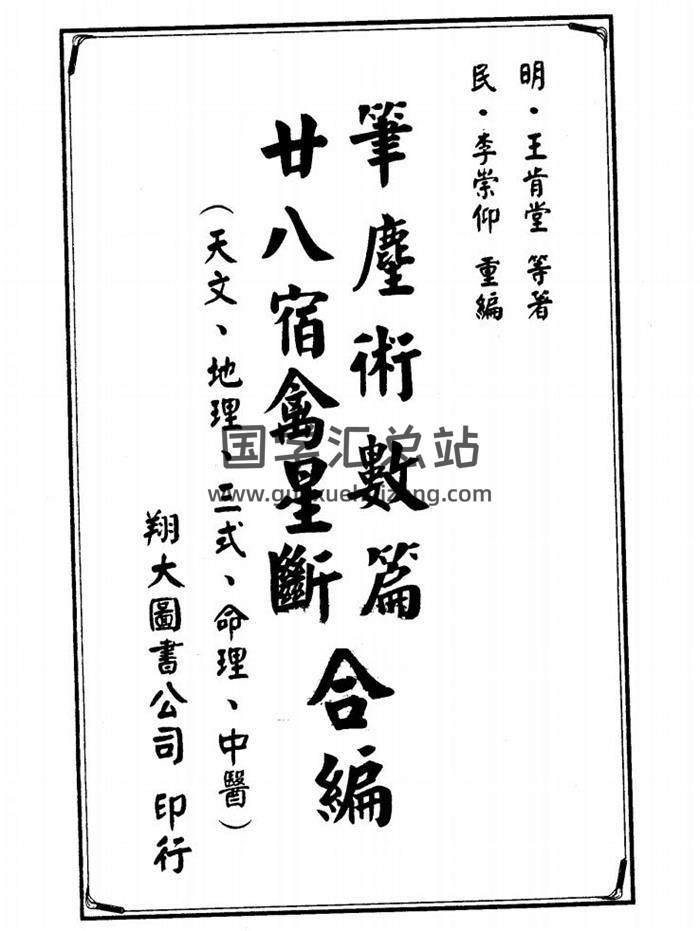 明·王肯堂 等著
民·李崇仰 重編
筆塵術數篇
廿八宿禽星斷
合編
（天文、地理、三式、命理、中醫）
翔大圖書公司 印行
国学汇总站
www.guoxuehuizong.com